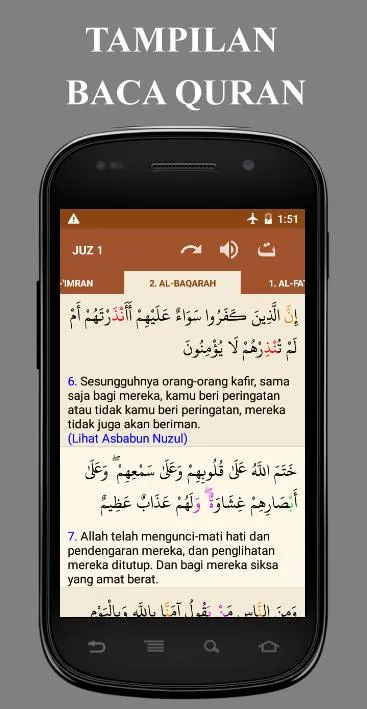 TAMPILAN
BACA QURAN
1:51
JUZ 1
ت
-'IMRAN
2. AL-BAQARAH
1. AL-FA
إِنَّ الَّذِينَ كَفَرُوا سَوَاءٌ عَلَيْهِمْ أَأَنْذَرْتَهُمْ أَمْ
لَمْ تُنْذِرْهُمْ لَا يُؤْمِنُونَ
6. Sesungguhnya orang-orang kafir, sama
saja bagi mereka, kamu beri peringatan
atau tidak kamu beri peringatan, mereka
tidak juga akan beriman.
(Lihat Asbabun Nuzul)
خَتَمَ اللَّهُ عَلَىٰ قُلُوبِهِمْ وَعَلَىٰ سَمْعِهِمْ ۖ وَعَلَىٰ
أَبْصَارِهِمْ غِشَاوَةٌ ۖ وَلَهُمْ عَذَابٌ عَظِيمٌ
7. Allah telah mengunci-mati hati dan
pendengaran mereka, dan penglihatan
mereka ditutup. Dan bagi mereka siksa
yang amat berat.
وَمِنَ النَّاسِ مَنْ يَقُولُ آمَنَّا بِاللَّهِ وَبِالْيَوْمِ